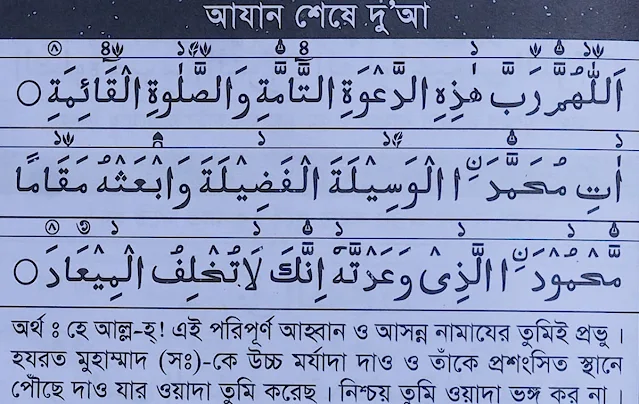 আযান শেষে দু'আ
اَللّٰهُمَّ رَبَّ هٰذِهِ الدَّعْوَةِ التَّآمَّةِ وَالصَّلٰوةِ الْقَآئِمَةِ ○
اٰتِ مُحَمَّدَ نِ ا الْوَسِيْلَةَ الْفَضِيْلَةَ وَابْعَثْهُ مَقَامًا
مَّحْمُوْدَ نِ ا الَّذِىْ وَعَدْتَّهٗ اِنَّكَ لَاتُخْلِفُ الْمِيْعَادَ ○
অর্থ ঃ হে আল্ল-হ্! এই পরিপূর্ণ আহ্বান ও আসন্ন নামাযের তুমিই প্রভু।
হযরত মুহাম্মাদ (সঃ)-কে উচ্চ মর্যাদা দাও ও তাঁকে প্রশংসিত স্থানে
পৌঁছে দাও যার ওয়াদা তুমি করেছ। নিশ্চয় তুমি ওয়াদা ভঙ্গ কর না।